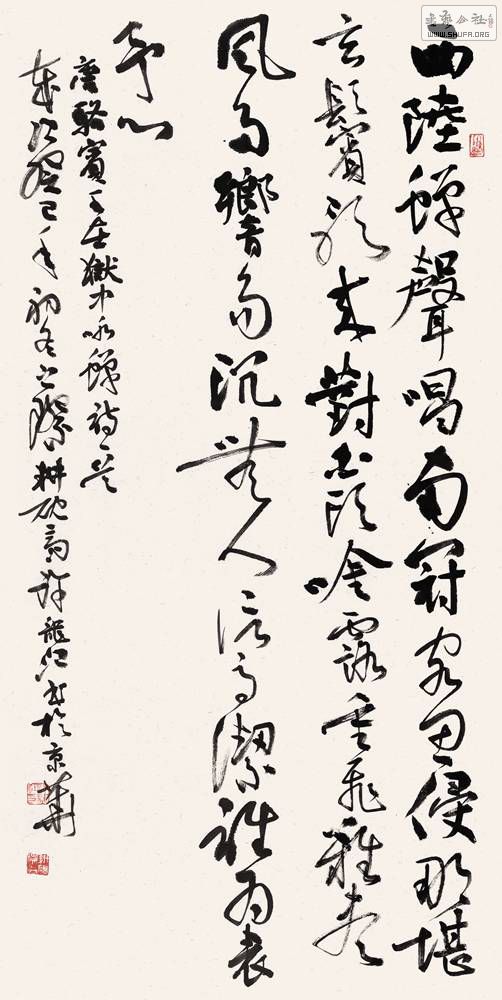 西陸蟬聲唱南冠客思侵那堪
玄鬢影來對白頭吟露重飛難進
風多響易沉無人信高潔誰為表
予心
唐駱賓王在獄中咏蟬詩一首
歲次癸巳年初冬之際耕砚斋许龍江書於京華
WWW.SHUFA.ORG